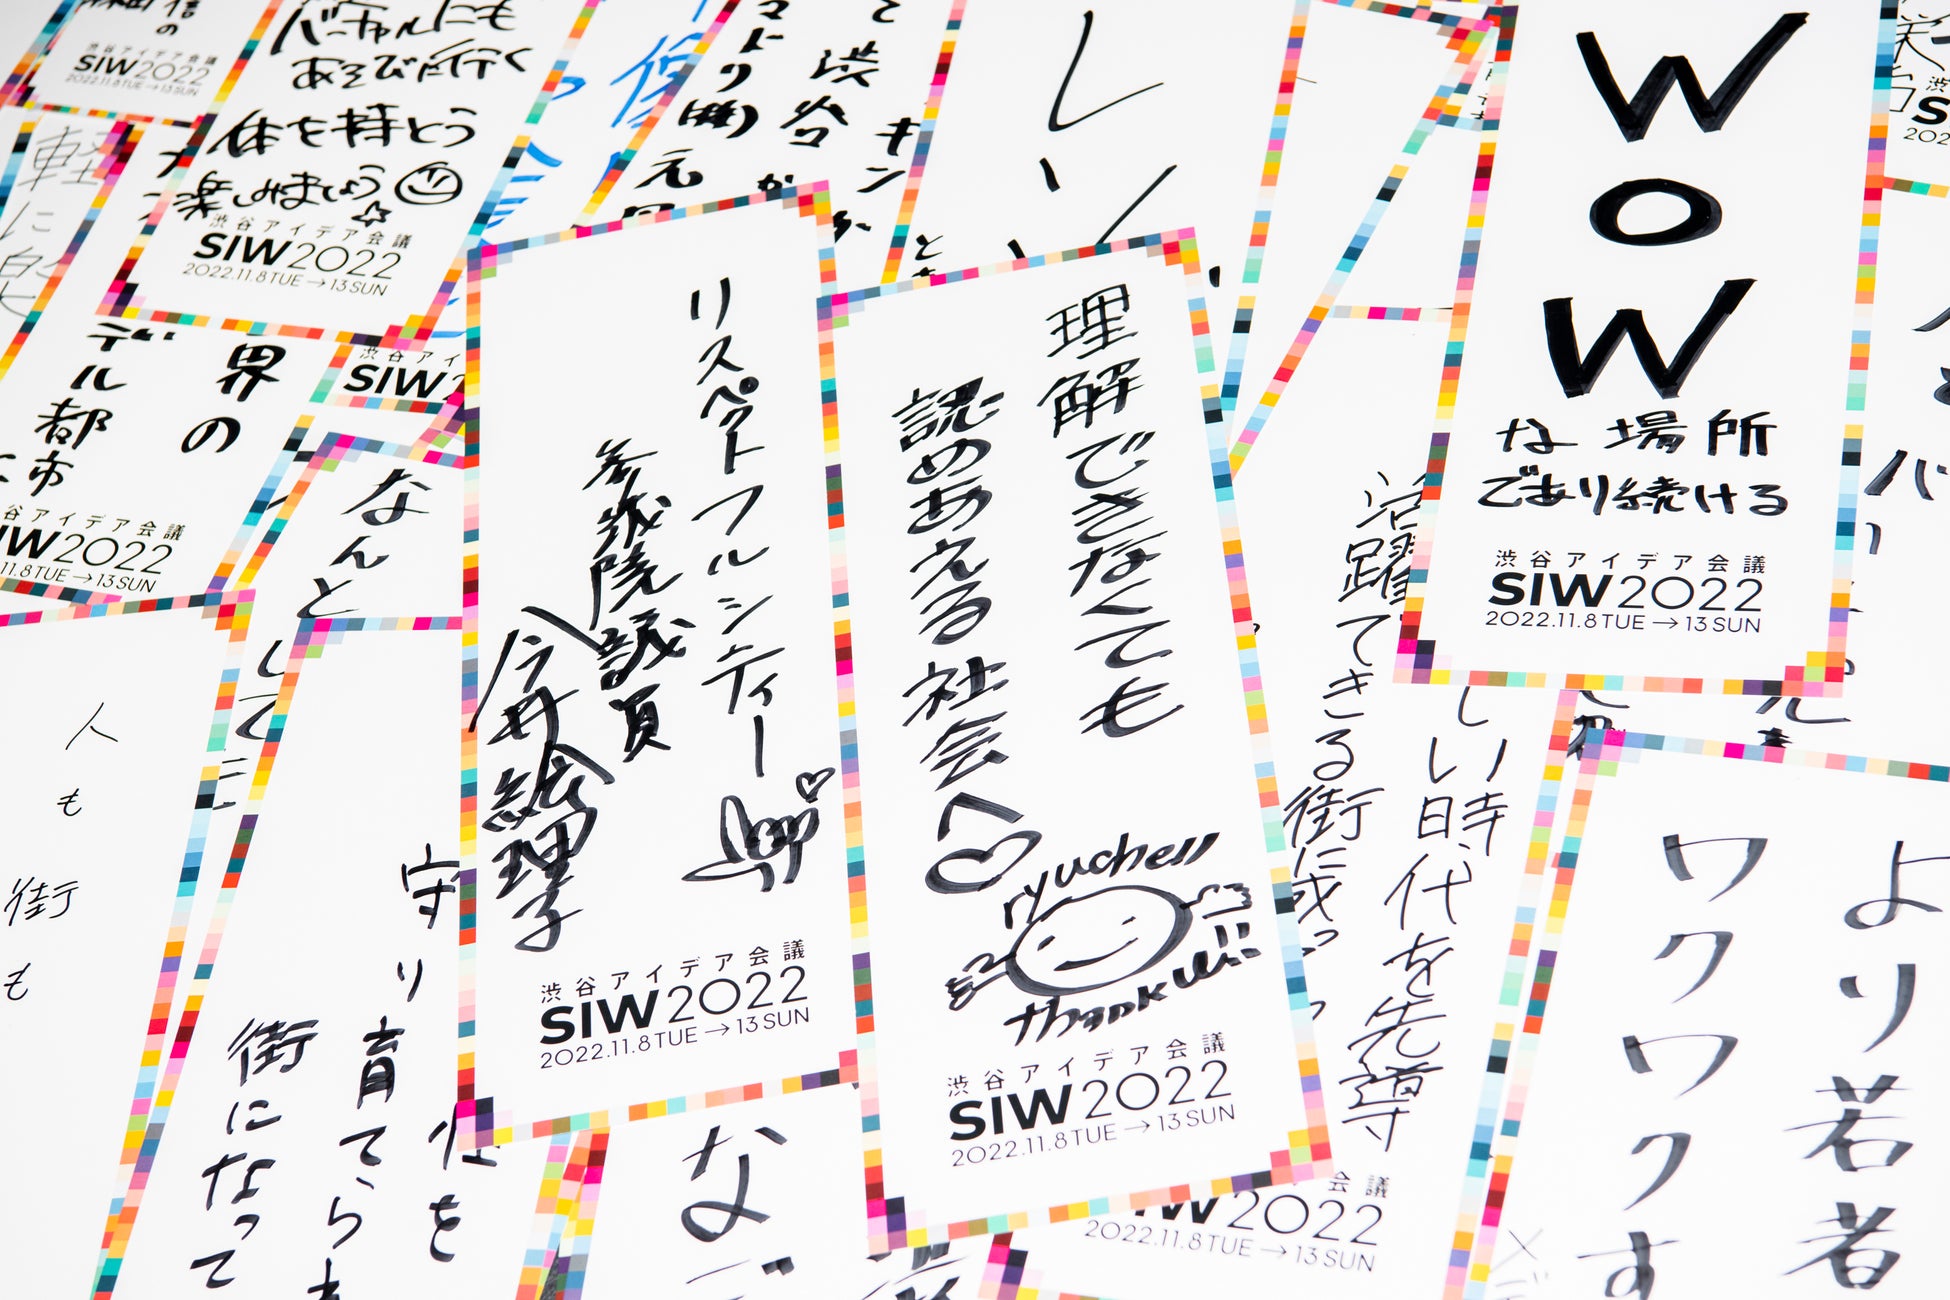 信の
渋谷アイデア会議
SIW2022
2022.11.8TUE→13SUN
バーチャルにも
あそびに行く
体を持とう
楽しみましょう
渋谷アイデア会議
SIW2022
2022.11.8TUE→13SUN
軽
に
渋谷
キン
レ
ー
WOW
な場所
であり続ける
渋谷アイデア会議
SIW2022
2022.11.8TUE→13SUN
界の
デル都市
アイデア会議
2022
TUE→13SUN
渋谷アイ
SIW
リスペクトフルシティー
参議院議員
今井絵理子
渋谷アイデア会議
SIW2022
2022.11.8TUE→13SUN
理解できなくても
認めあえる社会へ
ryuchell
thank u!!
渋谷アイデア会議
SIW2022
2022.11.8TUE→13SUN
しい時代を先導
活躍できる街に
なんと
して
人も
街も
守り
育てら
街になって
を
な
会議
2022
2022.11.8TUE→13SUN
より若者
ワクワクす